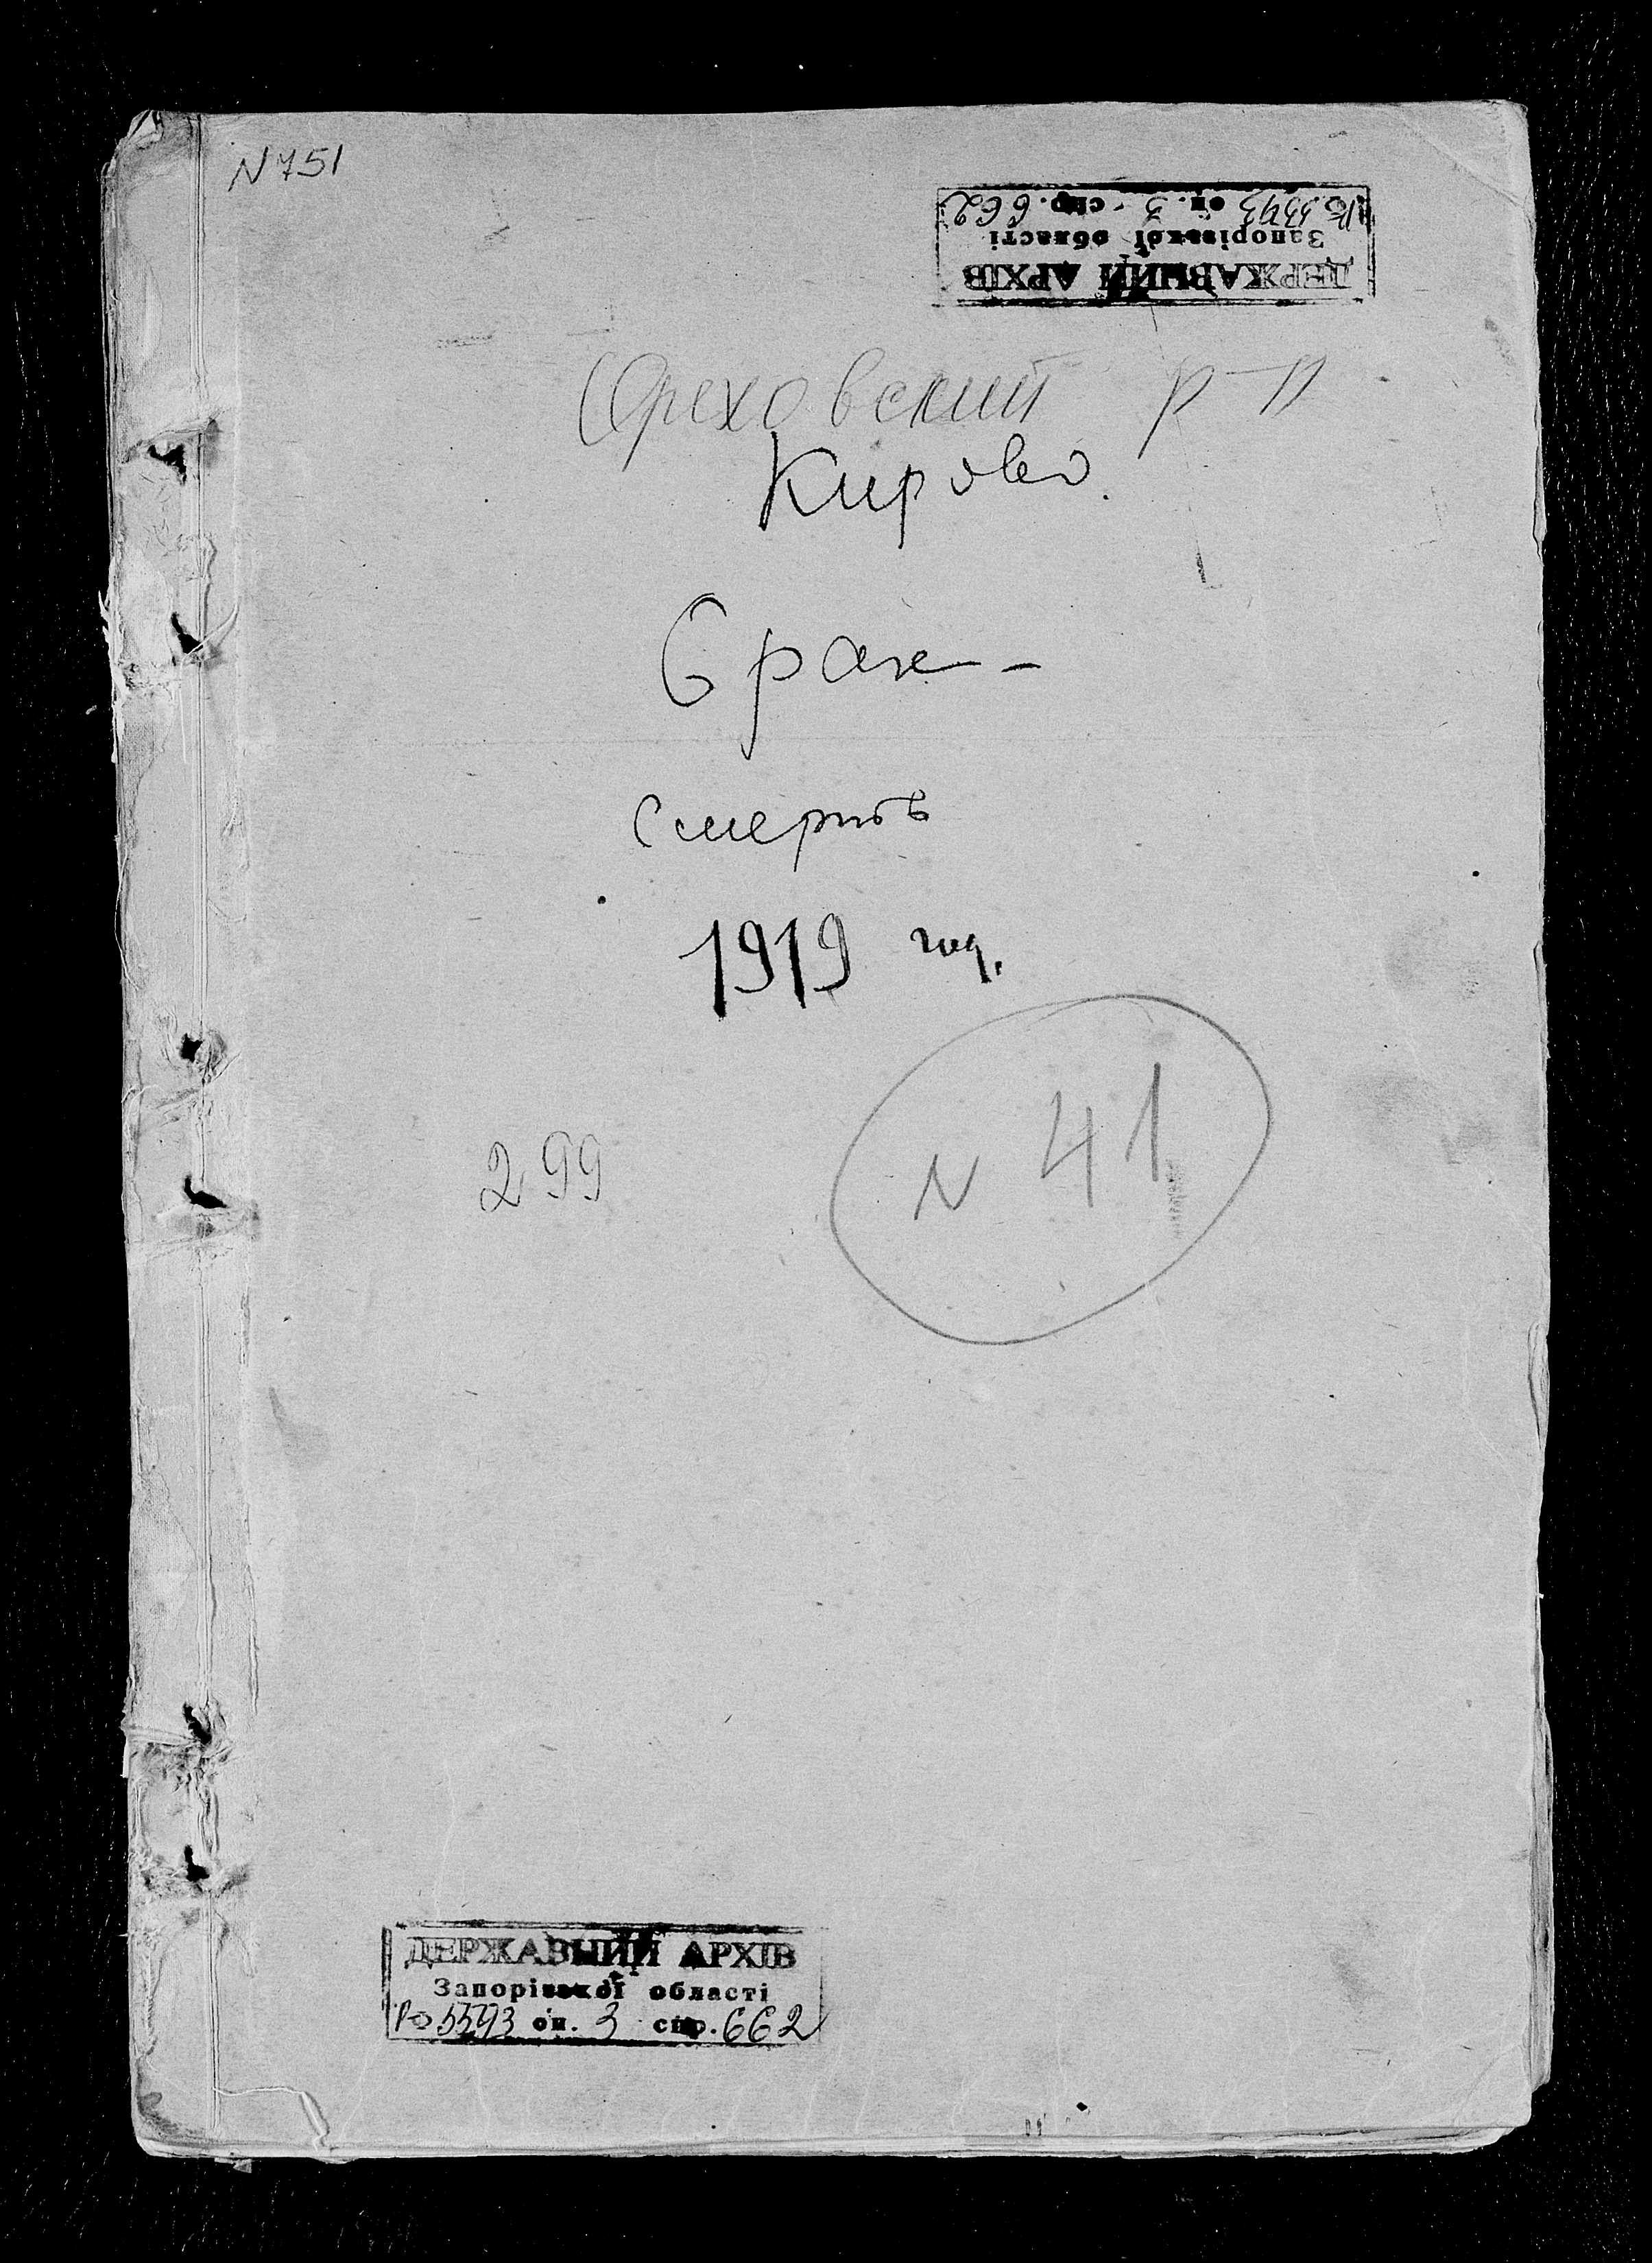 N 751
ДЕРЖАВНИЙ АРХІВ
Запорізької області
Р-5593 оп. 3 спр. 662
Ореховский р-н
Кирово.
брак -
смерть
1919 год.
N 41
299
ДЕРЖАВНИЙ АРХІВ
Запорізької області
Р-5593 оп. 3 спр. 662